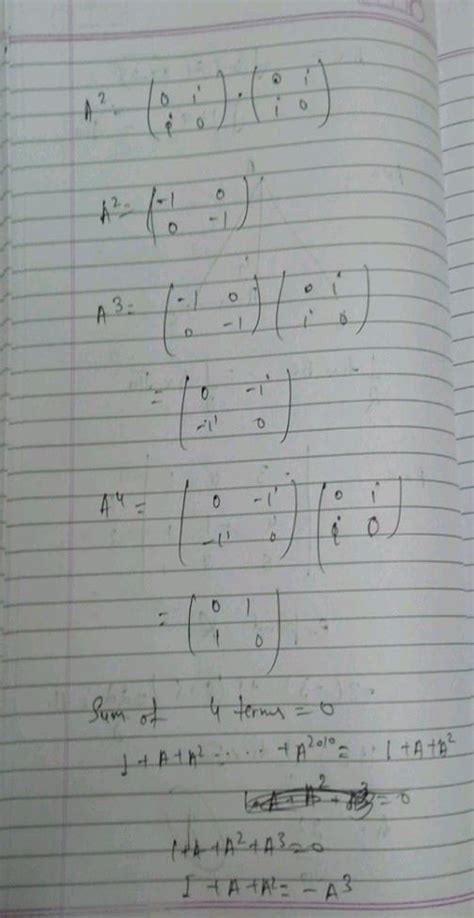 A² = (0 i / i 0) · (0 i / i 0)
A² = (-1 0 / 0 -1)
A³ = (-1 0 / 0 -1) (0 i / i 0)
= (0 -i / -i 0)
A⁴ = (0 -i / -i 0) (0 i / i 0)
= (0 1 / 1 0)
Sum of 4 terms = 0
I + A + A² ...... + A²⁰¹⁰ = I + A + A²
= 0
I + A + A² + A³ = 0
I + A + A² = -A³